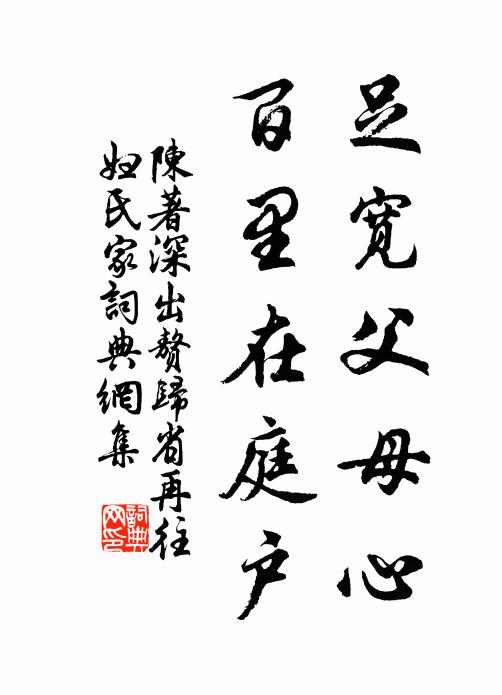 足寬父母心
百里在庭户
陳著深出贅歸省再往
妞氏家詞典網集
詞典网印